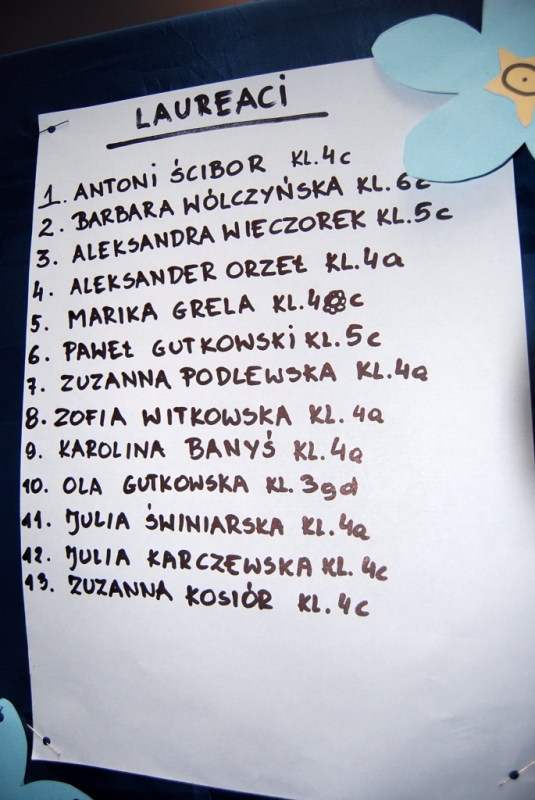 LAUREACI
1. ANTONI ŚCIBOR KL.4c
2. BARBARA WÓLCZYŃSKA KL.6c
3. ALEKSANDRA WIECZOREK KL.5c
4. ALEKSANDER ORZEŁ KL.4a
5. MARIKA GRELA KL.4c
6. PAWEŁ GUTKOWSKI KL.5c
7. ZUZANNA PODLEWSKA KL.4a
8. ZOFIA WITKOWSKA KL.4a
9. KAROLINA BANYŚ KL.4a
10. OLA GUTKOWSKA KL.3gd
11. JULIA ŚWINIARSKA KL.4a
12. JULIA KARCZEWSKA KL.4c
13. ZUZANNA KOSIÓR KL.4c